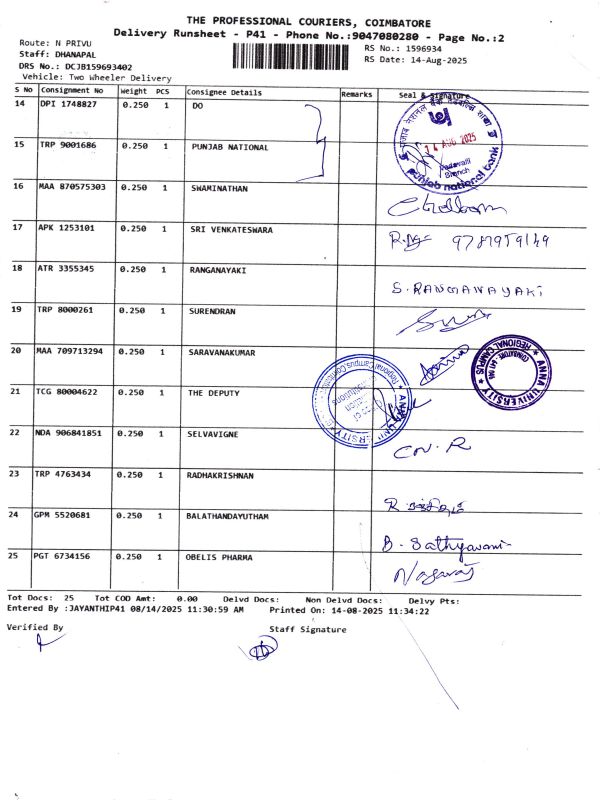 THE PROFESSIONAL COURIERS, COIMBATORE
Delivery Runsheet - P41 - Phone No.:9047080280 - Page No.:2
Route: N PRIVU
Staff: DHANAPAL
DRS No.: DCJB159693402
Vehicle: Two Wheeler Delivery
RS No.: 1596934
RS Date: 14-Aug-2025
S No Consignment No Weight PCS Consignee Details Remarks Seal & Signature
14 DPI 1748827 0.250 1 DO
15 TRP 9001686 0.250 1 PUNJAB NATIONAL
14 AUG 2025
Vadavalli
Branch
punjab national bank
16 MAA 870575303 0.250 1 SWAMINATHAN
17 APK 1253101 0.250 1 SRI VENKATESWARA
9787959149
18 ATR 3355345 0.250 1 RANGANAYAKI S. RANGANAYAKI
19 TRP 8000261 0.250 1 SURENDRAN
20 MAA 709713294 0.250 1 SARAVANAKUMAR
ANNA UNIVERSITY
REGIONAL CAMPUS
21 TCG 80004622 0.250 1 THE DEPUTY
22 NDA 906841851 0.250 1 SELVAVIGNE CN. R
23 TRP 4763434 0.250 1 RADHAKRISHNAN
24 GPM 5520681 0.250 1 BALATHANDAYUTHAM B. Sathyavani
25 PGT 6734156 0.250 1 OBELIS PHARMA Nagaraj
Tot Docs: 25 Tot COD Amt: 0.00 Delvd Docs: Non Delvd Docs: Delvy Pts:
Entered By :JAYANTHIP41 08/14/2025 11:30:59 AM Printed On: 14-08-2025 11:34:22
Verified By Staff Signature